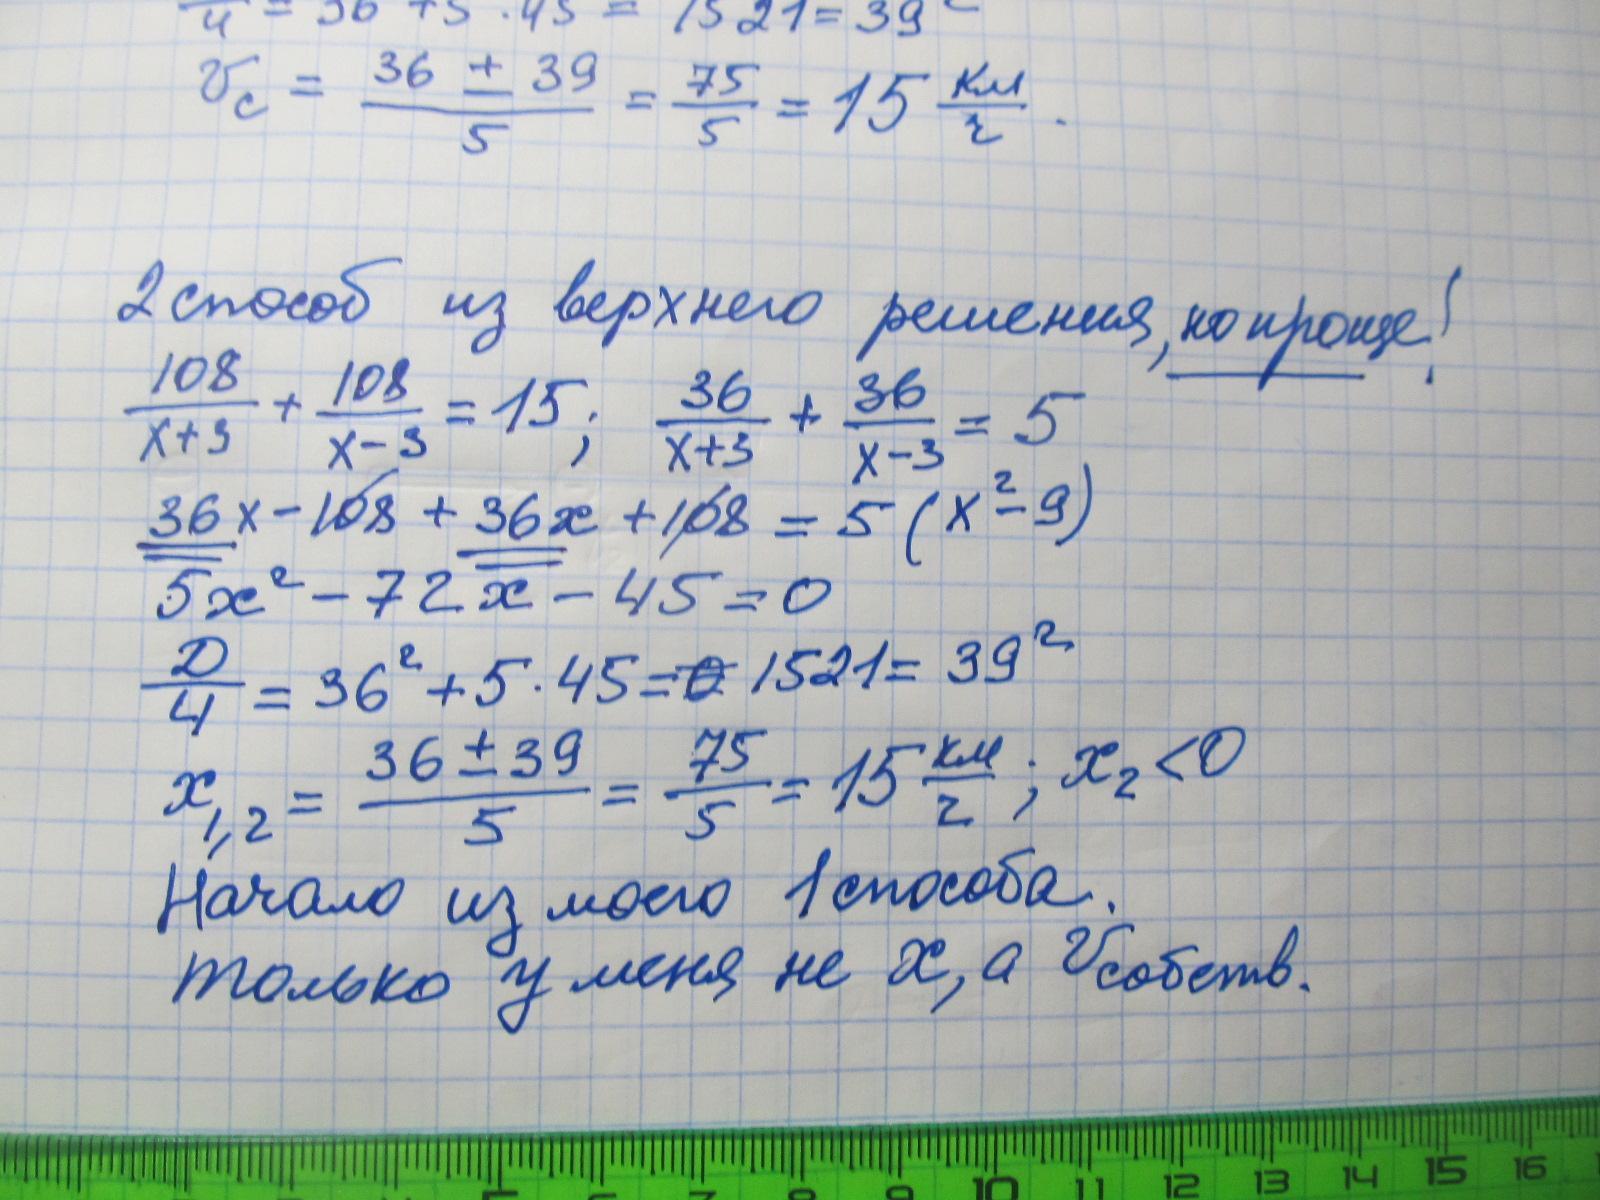 /4 = 36 + 5 · 45 = 1521 = 39²
Vc = (36 ± 39)/5 = 75/5 = 15 км/г.
2 способ из верхнего решения, но проще!
108/(x+3) + 108/(x-3) = 15; 36/(x+3) + 36/(x-3) = 5
36x - 108 + 36x + 108 = 5(x² - 9)
5x² - 72x - 45 = 0
D/4 = 36² + 5 · 45 = 1521 = 39²
x₁,₂ = (36 ± 39)/5 = 75/5 = 15 км/г; x₂ < 0
Начало из моего 1 способа.
Только у меня не x, а Vсобств.
5 7 8 9 10 11 12 13 14 15 16